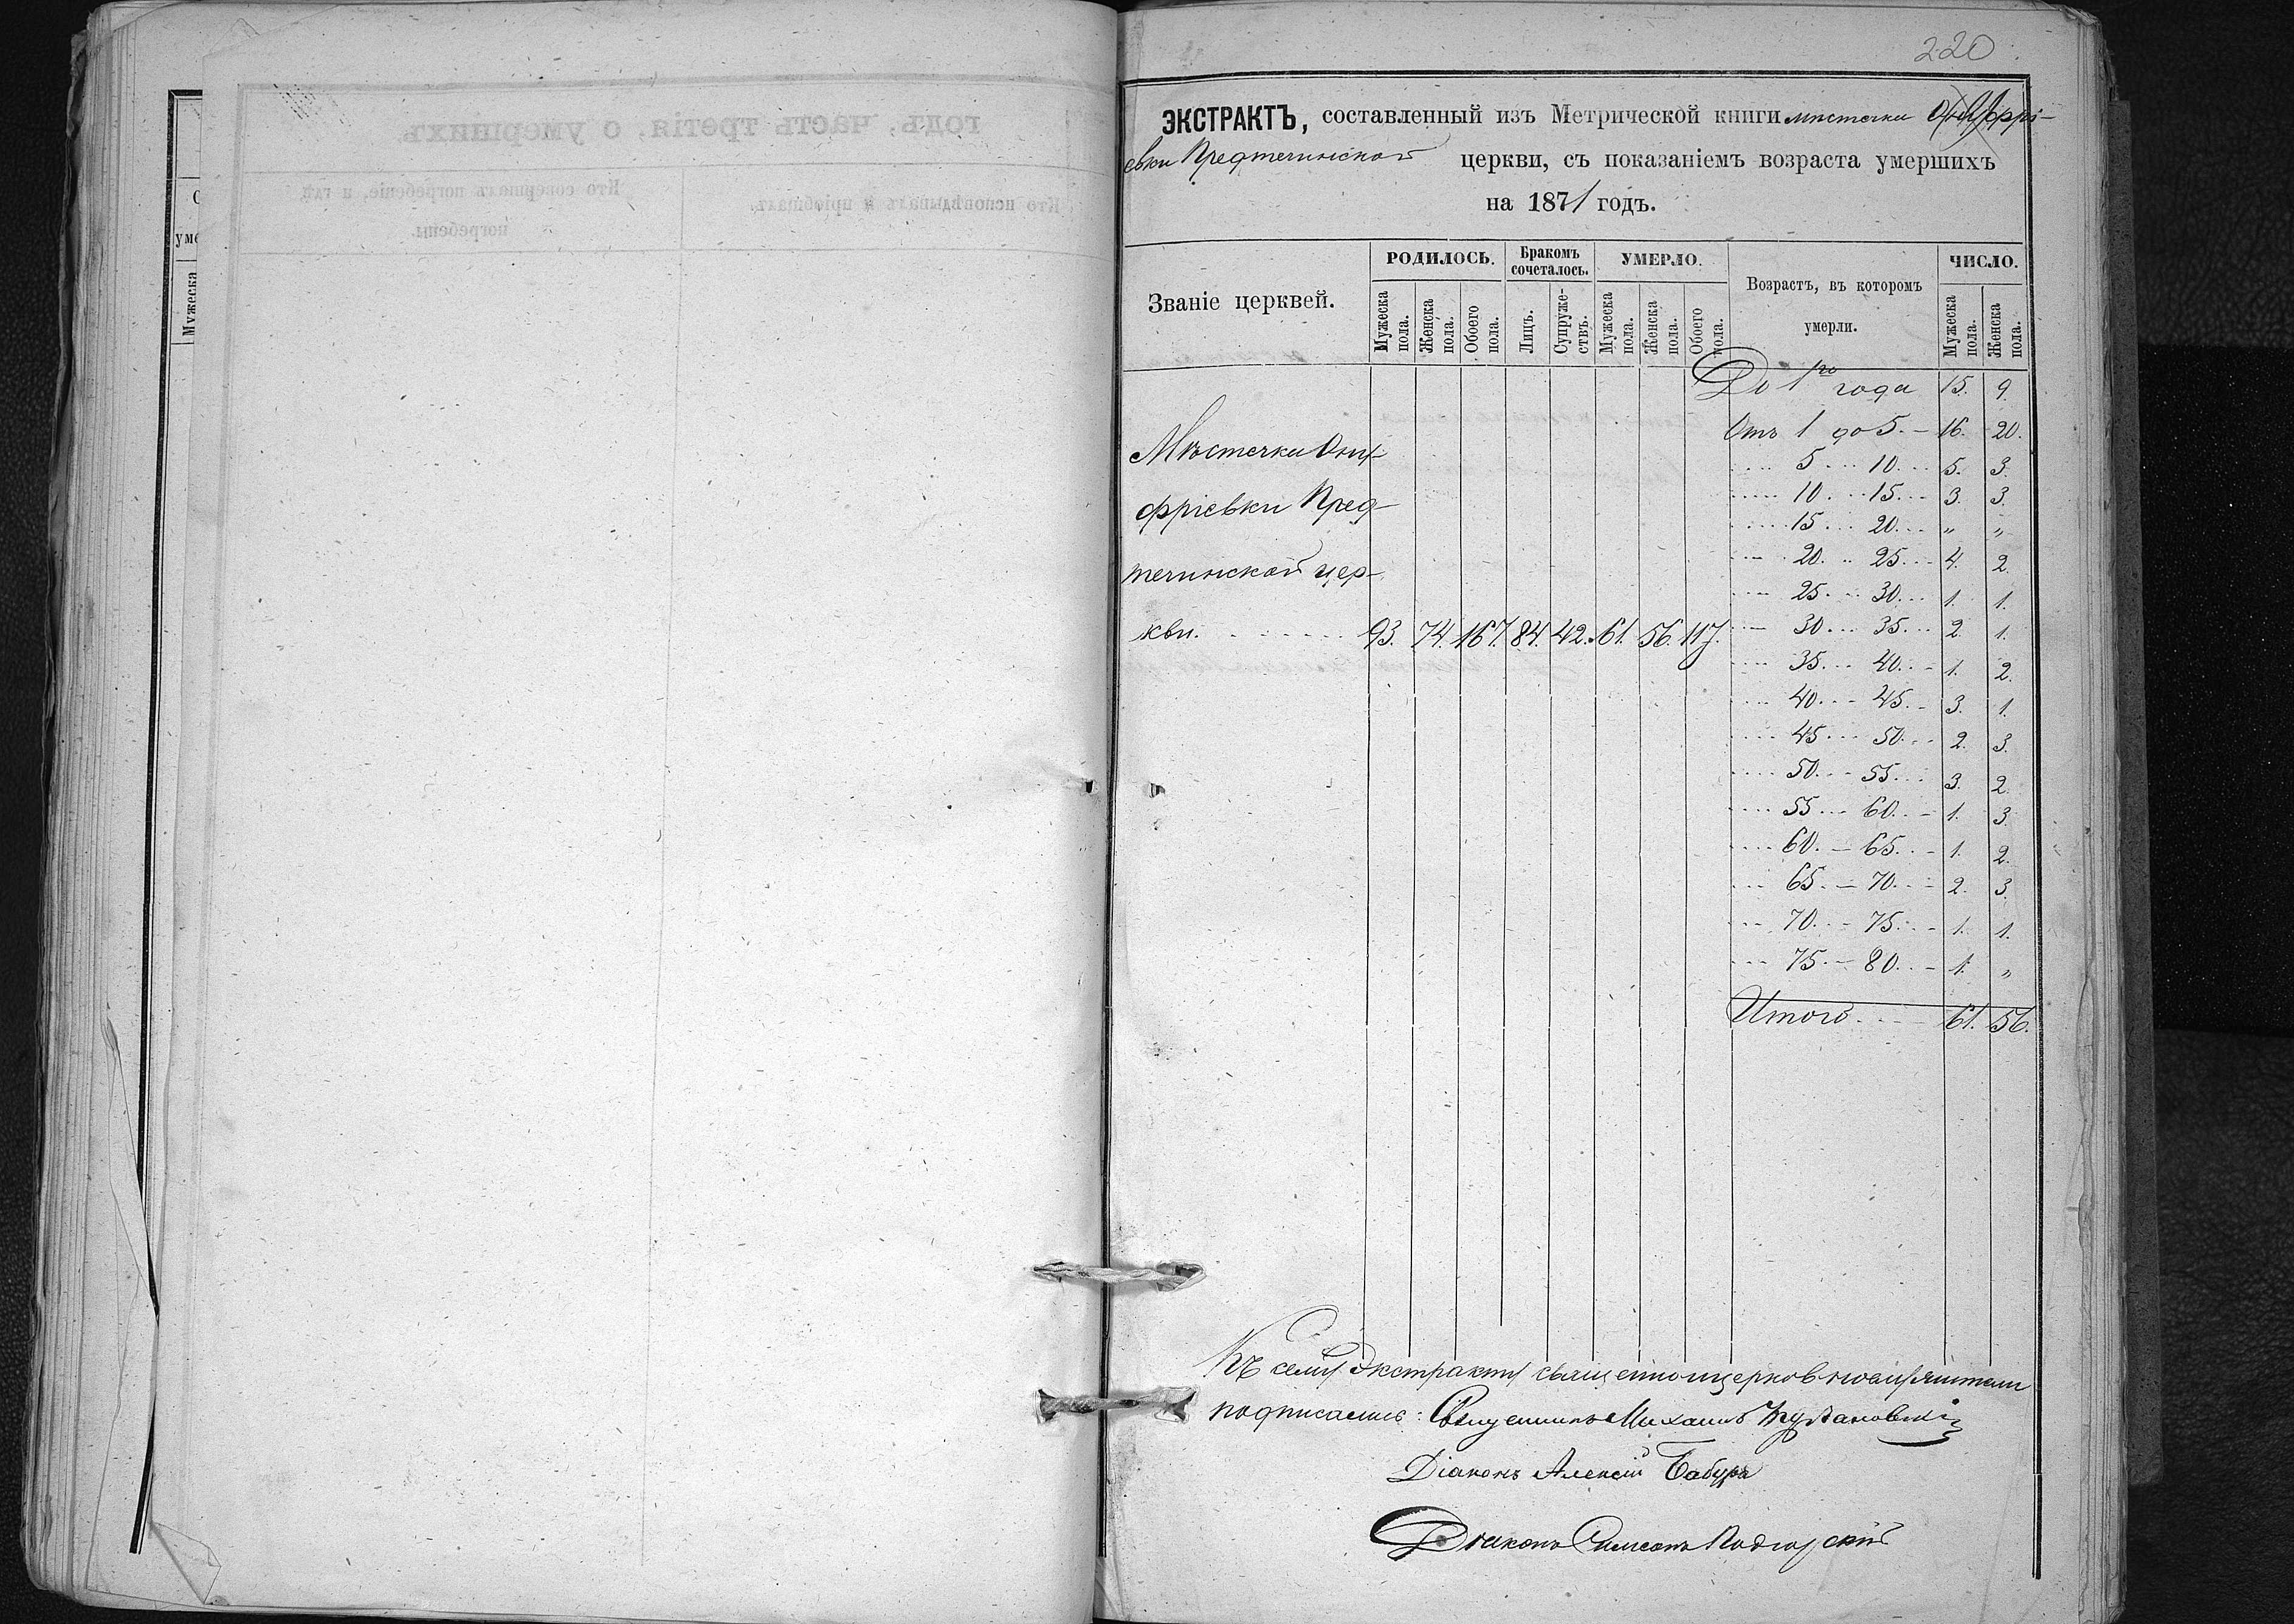 220
ЭКСТРАКТЪ, составленный изъ Метрической книги мѣстечка Онуфрі-
евки Предтечинской церкви, съ показаніемъ возраста умершихъ
на 1871 годъ.
Званіе церквей.
РОДИЛОСЬ.
Мужеска пола.
Женска пола.
Обоего пола.
Бракомъ сочеталось.
Лицъ.
Супружествъ.
УМЕРЛО.
Мужеска пола.
Женска пола.
Обоего пола.
Возрастъ, въ которомъ
умерли.
ЧИСЛО.
Мужеска пола.
Женска пола.
Мѣстечка Ону-
фріевки Пред-
течинской цер-
кви. 93. 74. 167. 84. 42. 61. 56. 117.
До 1го года 15. 9.
Отъ 1 до 5. 16. 20.
5 10. 5. 3.
10. 15. 3. 3.
15. 20. „ „
20. 25. 4. 2.
25. 30. 1. 1.
30 35. 2. 1.
35. 40. 1. 2.
40. 45. 3. 1.
45 50. 2. 3.
50. 55. 3. 2.
55 60. 1. 3.
60. 65. 1. 2.
65. 70. 2. 3.
70. 75. 1. 1.
75. 80. 1. „
Итого 61. 56.
Къ сему Экстракту священноцерковнослужители
подписались: Священникъ Михаилъ
Діаконъ Алексій Бабура
Діаконъ Самсонъ Подгорскій
годъ, часть третія, о умершихъ.
Кто исповѣдывалъ и пріобщалъ.
Кто совершалъ погребеніе, и гдѣ
погребены.
уме
Мужеска